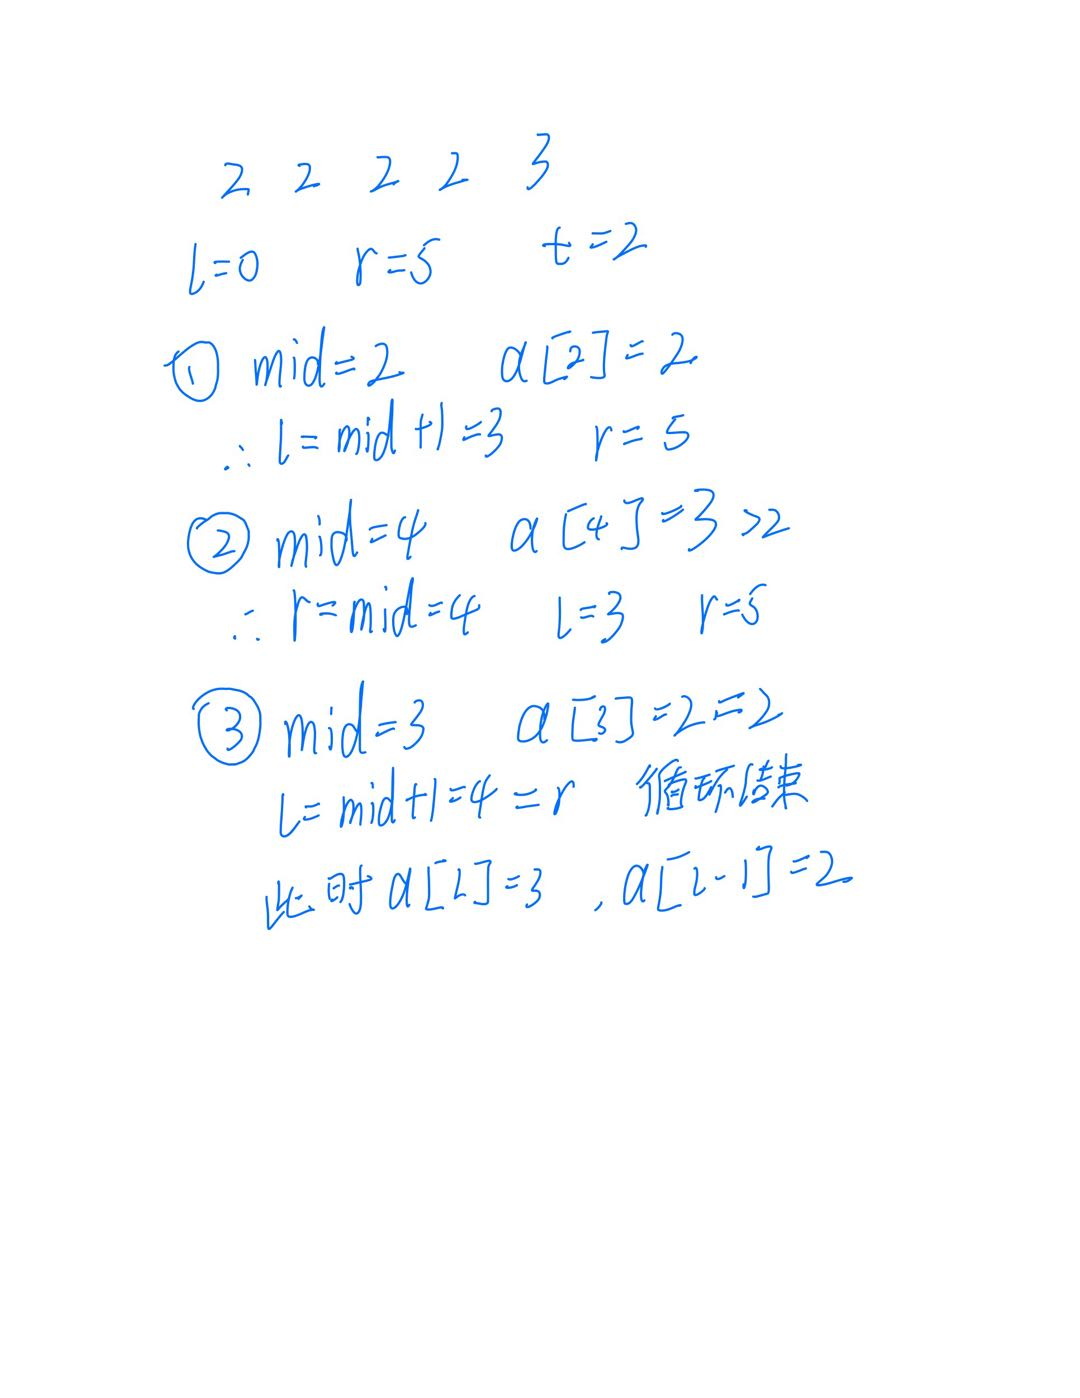 2 2 2 2 3
l=0 r=5 t=2
① mid=2 a[2]=2
∴ l=mid+1=3 r=5
② mid=4 a[4]=3>2
∴ r=mid=4 l=3 r=5
③ mid=3 a[3]=2=2
l=mid+1=4=r 循环结束
此时a[l]=3,a[l-1]=2